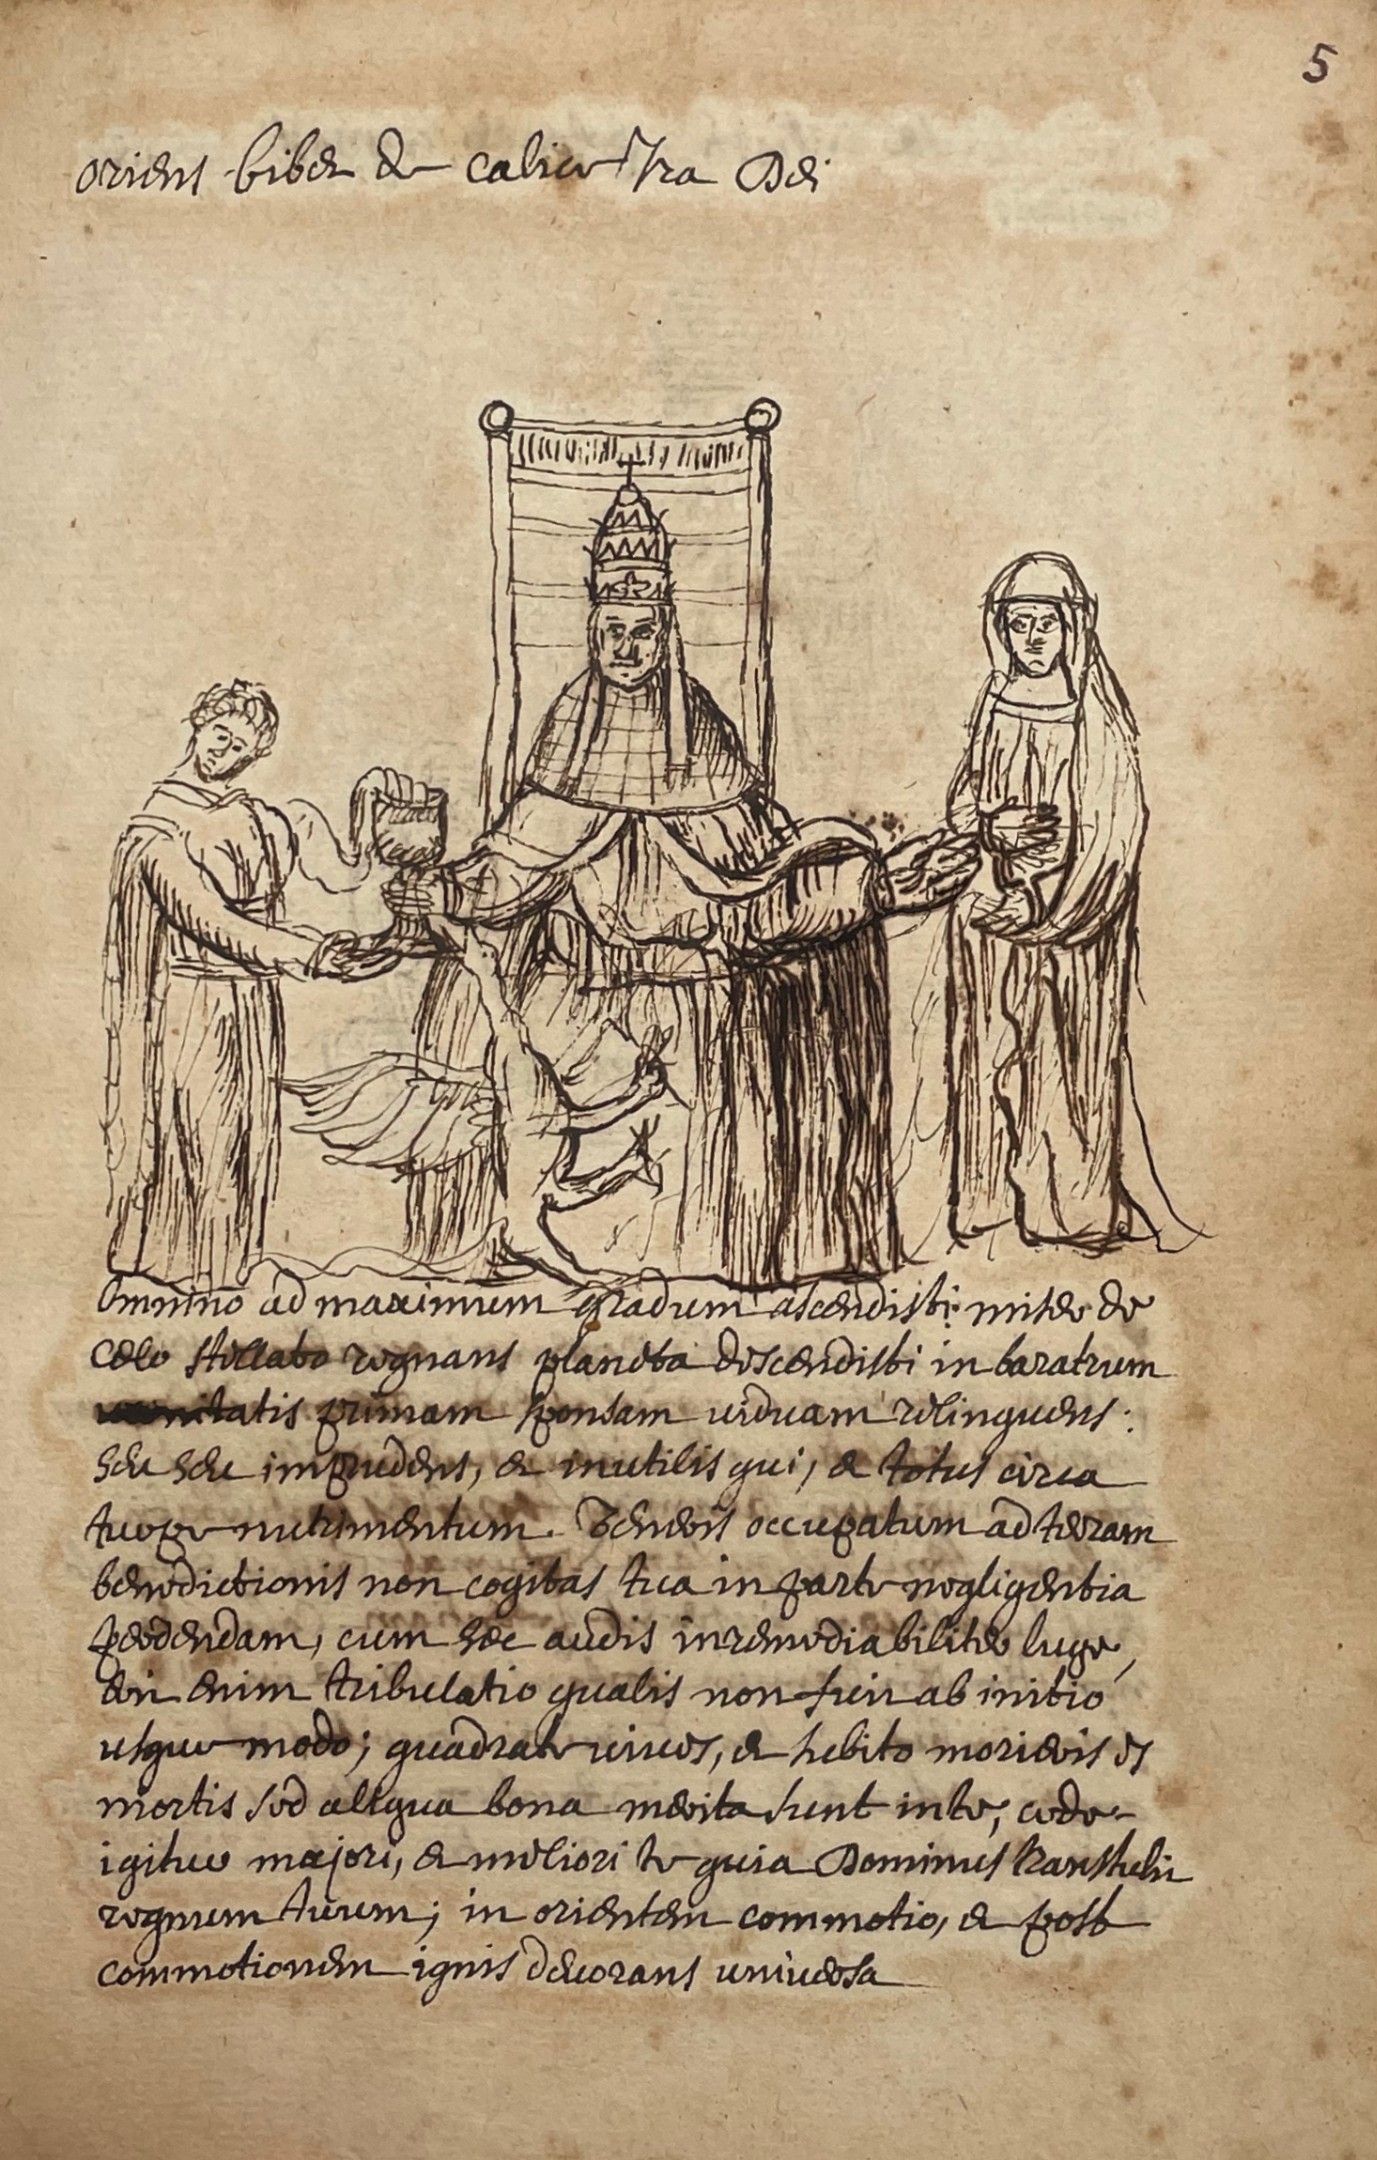 5
oriens bibet de calice Irae Dei
Omnino ad maximum gradum ascendisti: miser de
caelo stellato regnans planeta descendisti in baratrum
primam sponsam viduam relinquens:
heu heu imprudens, et inutilis qui, et totus circa
nutrimentum. Teneris occupatum ad terram
benedictionis non cogitas tua in parte negligentia
perdendam, cum haec audis inremediabiliter luge,
erit enim tribulatio qualis non fuit ab initio
usque modo; quadrate vives, et subito morieris es
mortis sed aliqua bona merita sunt in te, cede
igitur majori, et meliori te quia Dominus transtulit
regnum tuum; in orientem commotio, et post
commotionem ignis devorans universa